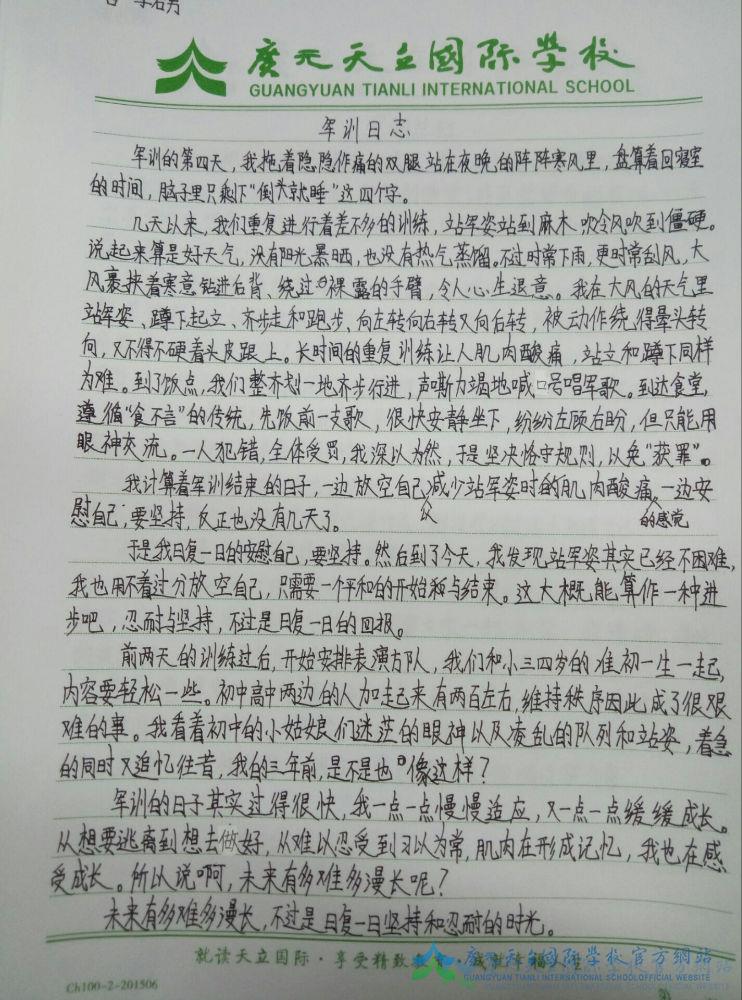 廣元天立國际學校
GUANGYUAN TIANLI INTERNATIONAL SCHOOL
军训日志
军训的第四天，我拖着隐隐作痛的双腿站在夜晚的阵阵寒风里，盘算着回寝室
的时间，脑子里只剩下“倒头就睡”这四个字。
几天以来，我们重复进行着差不多的训练，站军姿站到麻木吹冷风吹到僵硬。
说起来算是好天气，没有阳光暴晒，也没有热气蒸馏。不过时常下雨，更时常刮风，大
风裹挟着寒意钻进后背、绕过裸露的手臂，令人心生退意。我在大风的天气里
站军姿、蹲下起立、齐步走和跑步，向左转向右转又向后转，被动作绕得晕头转
向，又不得不硬着头皮跟上。长时间的重复训练让人肌肉酸痛，站立和蹲下同样
为难。到了饭点，我们整齐划一地齐步行进，声嘶力竭地喊口号唱军歌。到达食堂，
遵循“食不言”的传统，先饭前一支歌，很快安静坐下，纷纷左顾右盼，但只能用
眼神交流。一人犯错，全体受罚，我深以为然，于是坚决恪守规则，以免“获罪”。
我计算着军训结束的日子，一边放空自己以减少站军姿时的肌肉酸痛的感觉，一边安
慰自己，要坚持，反正也没有几天了。
于是我日复一日的安慰自己，要坚持。然后到了今天，我发现站军姿其实已经不困难，
我也用不着过分放空自己，只需要一个平和的开始和与结束。这大概能算作一种进
步吧，忍耐与坚持，不过是日复一日的回报。
前两天的训练过后，开始安排表演方队，我们和小三四岁的准初一生一起，
内容要轻松一些。初中高中两边的人加起来有两百左右，维持秩序因此成了很艰
难的事。我看着初中的小姑娘们迷茫的眼神以及凌乱的队列和站姿，着急
的同时又追忆往昔，我的三年前，是不是也像这样？
军训的日子其实过得很快，我一点一点慢慢适应，又一点一点缓缓成长。
从想要逃离到想去做好，从难以忍受到习以为常，肌肉在形成记忆，我也在感
受成长。所以说啊，未来有多难多漫长呢？
未来有多难多漫长，不过是日复一日坚持和忍耐的时光。
就读天立国际·享受精致教育
廣元天立國际學校官方網站
GUANGYUAN TIANLI INTERNATIONAL SCHOOL OFFICIAL WEBSITE
Ch100-2-201506